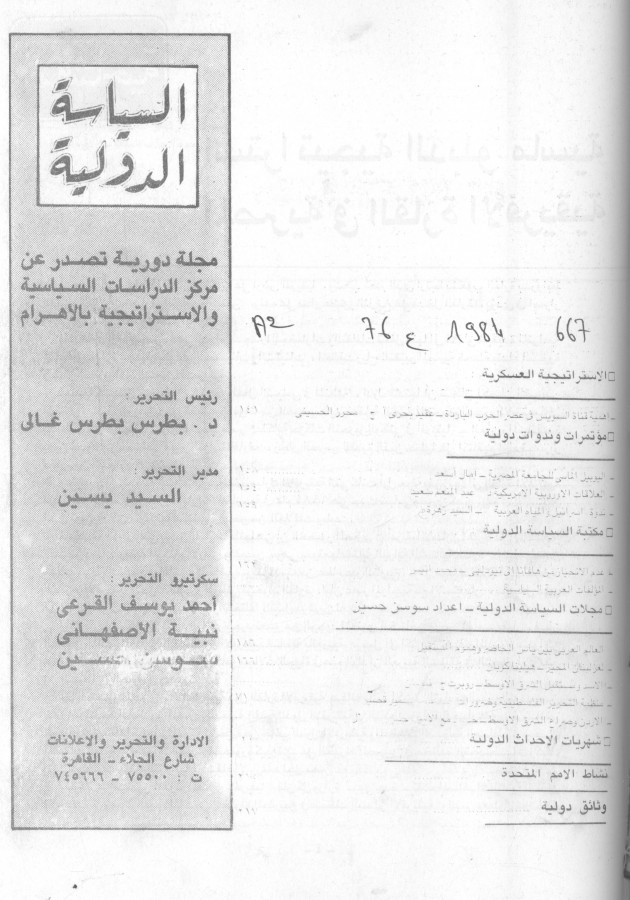 السياسة
الدولية
مجلة دورية تصدر عن
مركز الدراسات السياسية
والاستراتيجية بالأهرام
رئيس التحرير :
د . بطرس بطرس غالى
مدير التحرير :
السيد يسين
سكرتيرو التحرير :
أحمد يوسف القرعى
نبية الأصفهانى
سوسن حسين
الادارة والتحرير والاعلانات
شارع الجلاء ـ القاهرة
ت : ٧٥٥٠٠ ـ ٧٤٥٦٦٦
A2 76 ع 1984 667
□ الاستراتيجية العسكرية :
اهمية قناة السويس فى عصر الحرب الباردة ـ عقيد بحرى أ . ح . محرز الحسينى
□ مؤتمرات وندوات دولية
ـ اليوبيل الماسى للجامعة المصرية ـ آمال أسعد
ـ العلاقات الاوروبية الامريكية ـ عبد المنعم سعيد
ـ ندوة اسرائيل والمياه العربية ـ السيد زهرة
□ مكتبة السياسة الدولية
ـ عدم الانحياز من الى نيودلهى
ـ المؤلفات العربية السياسية
□ مجلات السياسة الدولية ـ اعداد سوسن حسين
العالم العربى بين ياس الحاضر وهموم المستقبل
ومستقبل الشرق الاوسط ـ روبرت ج .
ـ منظمة التحرير الفلسطينية وضرورات
ـ الاردن وصراع الشرق الاوسط
□ شهريات الاحداث الدولية
نشاط الامم المتحدة
وثائق دولية